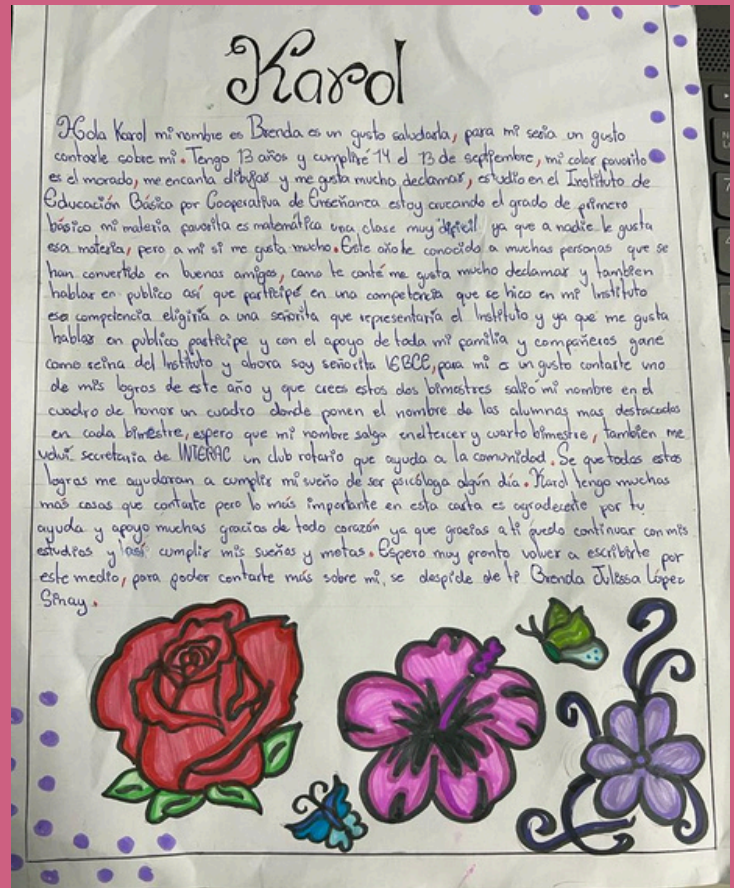 Karol
Hola Karol mi nombre es Brenda es un gusto saludarla, para mi seria un gusto
contarle sobre mi. Tengo 13 años y cumpliré 14 el 13 de septiembre, mi color favorito
es el morado, me encanta dibujar y me gusta mucho declamar, estudio en el Instituto de
Educación Básica por Cooperativa de Enseñanza estoy cursando el grado de primero
básico, mi materia favorita es matemática una clase muy dificil ya que a nadie le gusta
esa materia, pero a mi si me gusta mucho. Este año he conocido a muchas personas que se
han convertido en buenas amigas, como te conté me gusta mucho declamar y tambien
hablar en publico así que participé en una competencia que se hico en mi Instituto
esa competencia eligiria a una señorita que representaria el Instituto y ya que me gusta
hablar en publico participe y con el apoyo de toda mi familia y compañeros gane
como reina del Instituto y ahora soy señorita IEBCE, para mi es un gusto contarte uno
de mis logros de este año y que crees estos dos bimestres salio mi nombre en el
cuadro de honor un cuadro donde ponen el nombre de las alumnas mas destacadas
en cada bimestre, espero que mi nombre salga en el tercer y cuarto bimestre, tambien me
volvi secretaria de INTERAC un club rotario que ayuda a la comunidad. Se que todos estos
logros me ayudaran a cumplir mi sueño de ser psicóloga algún día. Karol tengo muchas
más cosas que contarte pero lo más importante en esta carta es agradecerte por tu
ayuda y apoyo muchas gracias de todo corazón ya que gracias a ti puedo continuar con mis
estudios y así cumplir mis sueños y metas. Espero muy pronto volver a escribirte por
este medio, para poder contarte más sobre mi, se despide de ti Brenda Julissa López
Sinay.